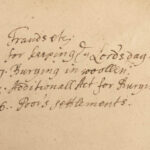 Frauds etc;
for keeping ye Lordsday
7. Burying in woollen.
Additionall Act for Burying
8. Poors settlements.